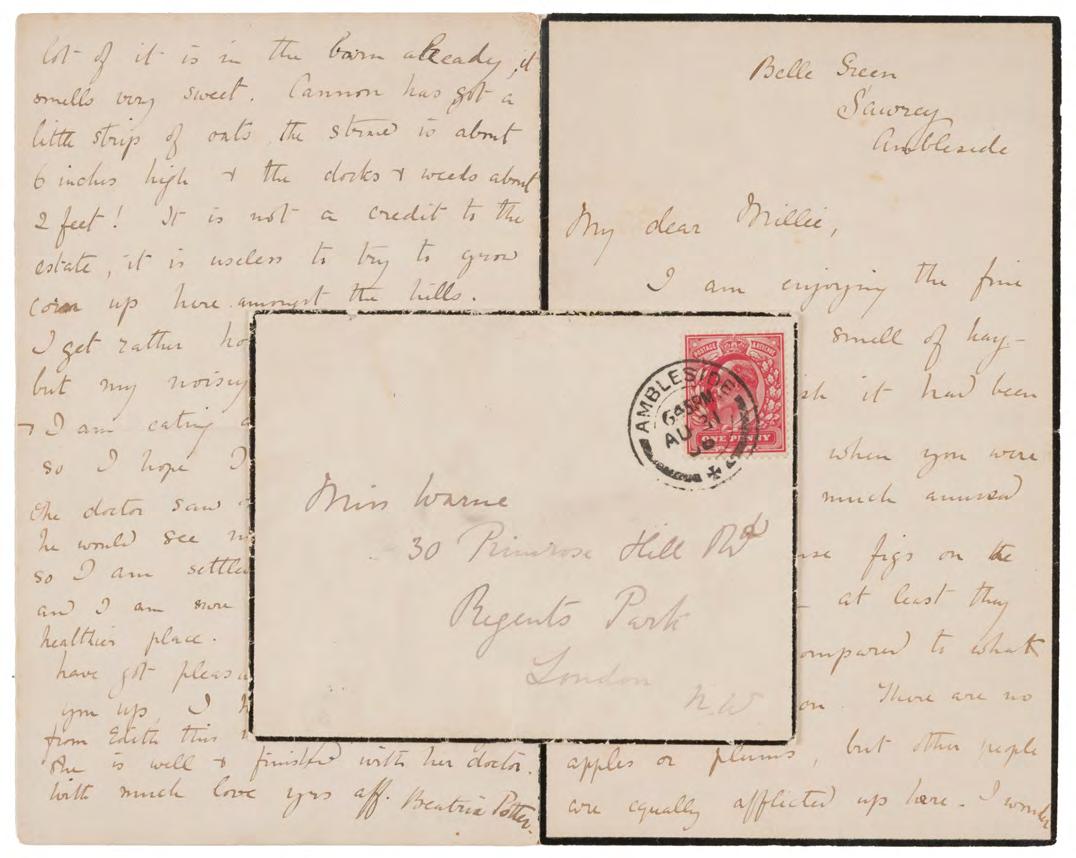 lot of it is in the barn already, it
smells very sweet. Cannon has got a
little strip of oats, the straw is about
6 inches high & the docks & weeds about
2 feet! It is not a credit to the
estate, it is useless to try to grow
corn up here amongst the hills.
I get rather ho
but my noisy
I am eating a
so I hope I
the doctor saw
he would see
so I am settle
and I am sure
healthier place.
have got pleas
you up, I h
from Edith this
she is well & finished with her doctor.
with much love yrs aff. Beatrix Potter.
Miss Warne
30 Primrose Hill Rd
Regents Park
London
N.W.
POSTAGE & REVENUE
ONE PENNY
AMBLESIDE
6 45 PM
AU
Belle Green
Sawrey
Ambleside
My dear Millie,
I am enjoying the fine
smell of hay -
sh it had been
when you were
much amused
figs on the
at least they
ompared to what
on. There are no
apples or plums, but other people
are equally afflicted up here. I wonder